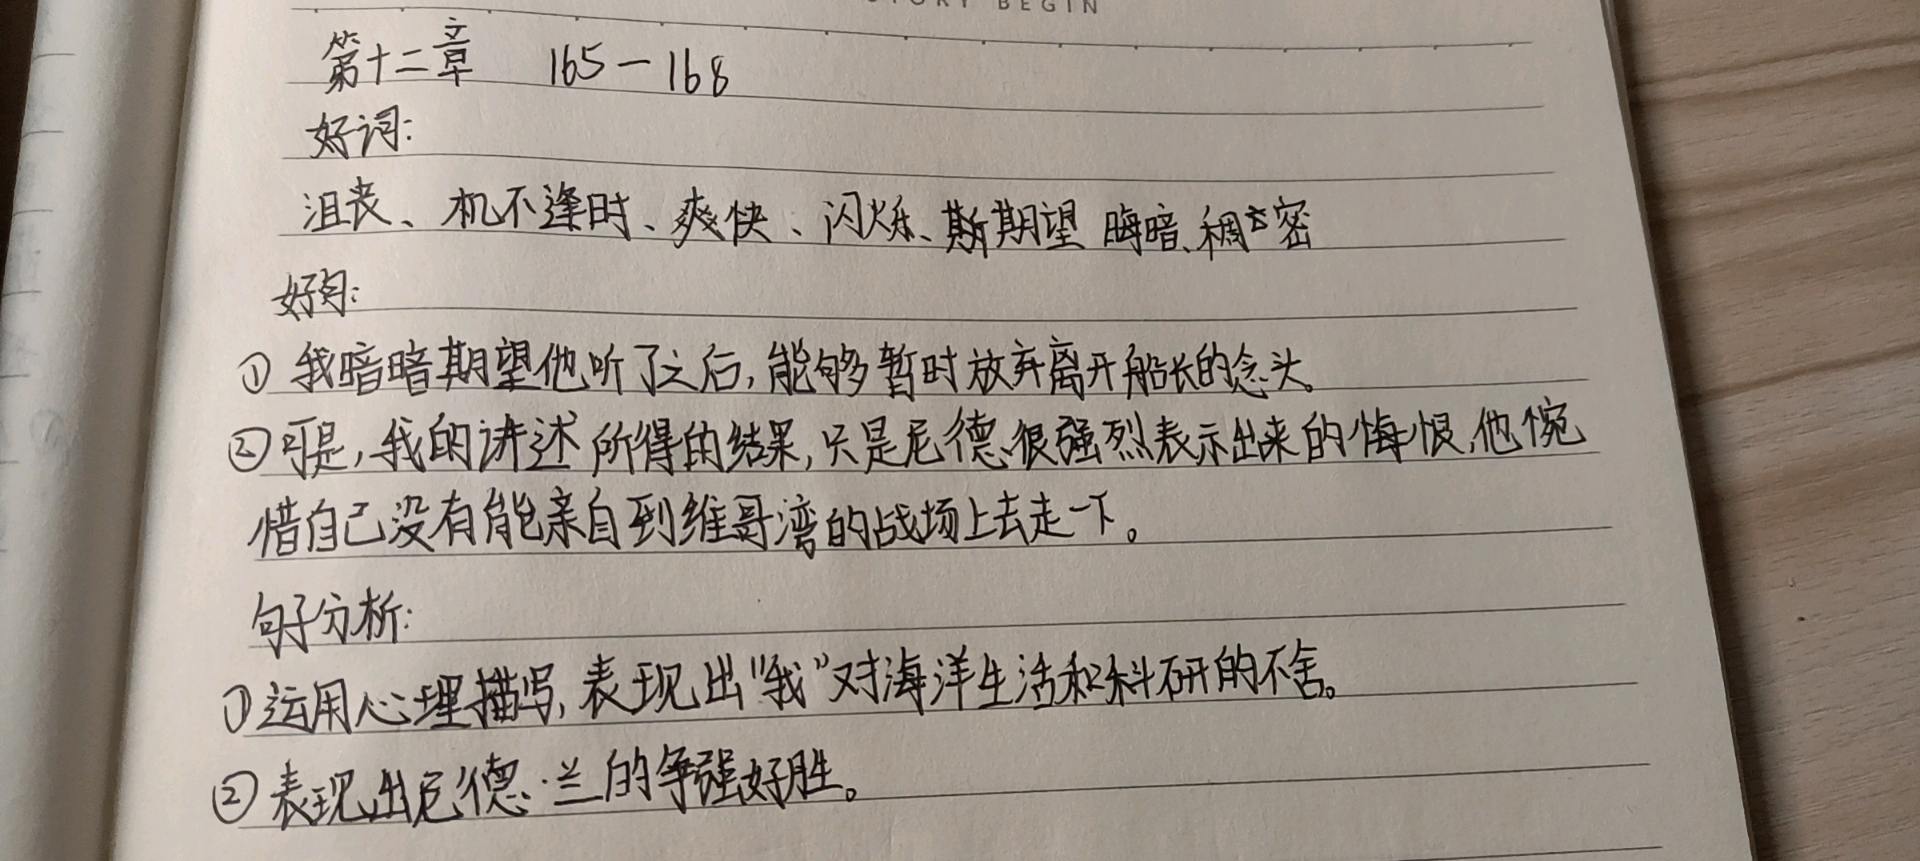 STORY BEGIN
第十二章 165—168
好词:
沮丧、机不逢时、爽快、闪烁、期望 晦暗、稠密
好句:
①我暗暗期望他听了之后,能够暂时放弃离开船长的念头。
②可是,我的讲述所得的结果,只是尼德很强烈表示出来的悔恨,他惋
惜自己没有能亲自到维哥湾的战场上去走一下。
句子分析:
①运用心理描写,表现出“我”对海洋生活和科研的不舍。
②表现出尼德·兰的争强好胜。